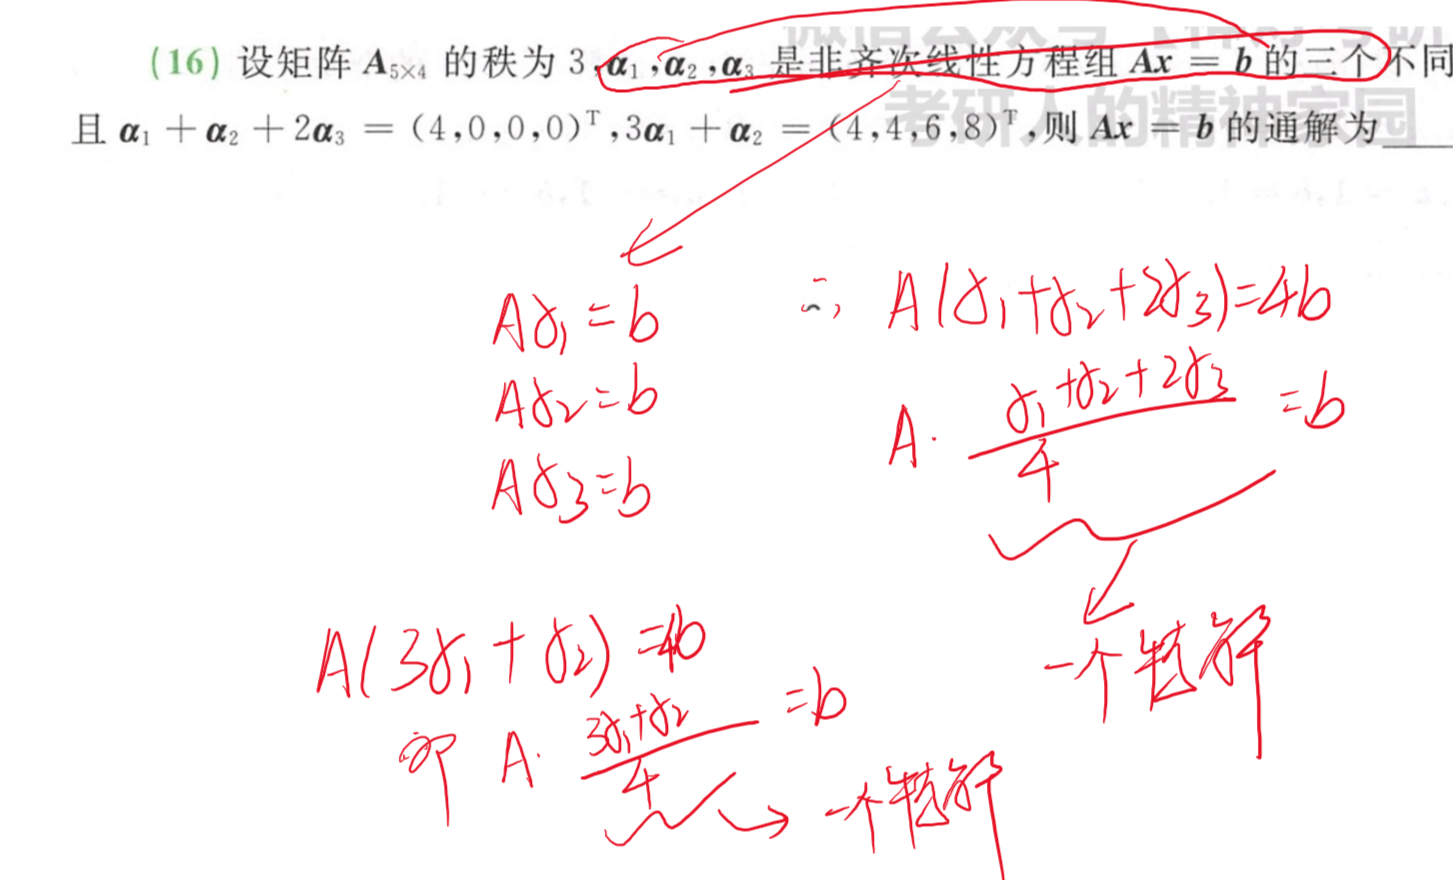 (16) 设矩阵 A₅ₓ₄ 的秩为 3, α₁, α₂, α₃ 是非齐次线性方程组 Ax = b 的三个不同
且 α₁ + α₂ + 2α₃ = (4,0,0,0)ᵀ, 3α₁ + α₂ = (4,4,6,8)ᵀ, 则 Ax = b 的通解为____
考研人的精神家园
Aα₁ = b
Aα₂ = b
Aα₃ = b
∴ A(α₁+α₂+2α₃)=4b
A· (α₁+α₂+2α₃)/4 = b
一个特解
A(3α₁+α₂) = 4b
即 A· (3α₁+α₂)/4 = b
→ 一个特解